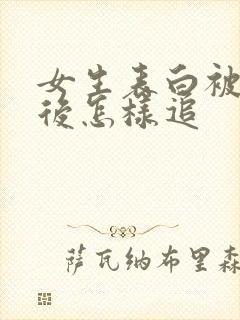 女生表白被
後怎樣追
萨瓦纳布里森